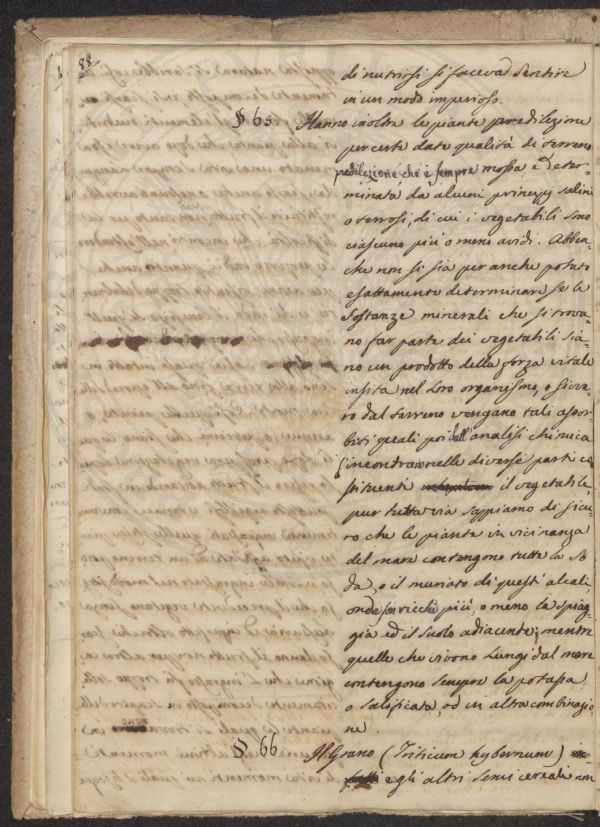 88
di nutrirsi si faceva sentire
in un modo imperioso.
§ 65 Hanno inoltre le piante predilezione
per certe date qualità di terreno
predilezione che è sempre mossa e deter-
minata da alcuni principj salini
o terrosi, di cui i vegetabili sono
ciascuno più o meno avidi. Abben-
che non si sia per anche potuto
esattamente determinare se le
sostanze minerali che si trova-
no far parte dei vegetabili sia-
no un prodotto della forza vitale
insita nel loro organismo, o sicve-
ro dal terreno vengano tali assor-
biti quali poi dall'analisi chimica
s'incontrano nelle diverse parti co-
stituenti il vegetabile,
pur tuttavia sappiamo di sicu-
ro che le piante in vicinanza
del mare contengono tutte la so-
da, o il muriato di quest'alcali,
onde son ricchi più, o meno la spiag-
gia ed il suolo adiacente; mentre
quelle che vivono lungi dal mare
contengono sempre la potassa
o salificata, od in altra combinazio-
ne.
§ 66 Il Grano (Triticum hybernum)
e gli altri semi cereali non